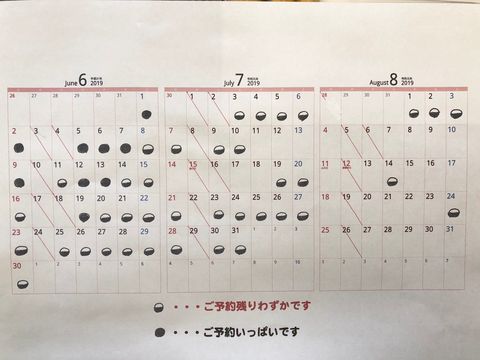 June 6 2019
26 27 28 29 30 31 1
2 3 4 5 6 7 8
9 10 11 12 13 14 15
16 17 18 19 20 21 22
23 24 25 26 27 28 29
30 1 2 3 4 5 6
July 7 令和元年 2019
30 1 2 3 4 5 6
7 8 9 10 11 12 13
14 15 16 17 18 19 20
21 22 23 24 25 26 27
28 29 30 31 1 2 3
4 5 6 7 8 9 10
August 8 令和元年 2019
1 2 3
4 5 6 7 8 9 10
11 12 13 14 15 16 17
18 19 20 21 22 23 24
25 26 27 28 29 30 31
1 2 3 4 5 6 7
・・・ご予約残りわずかです
・・・ご予約いっぱいです